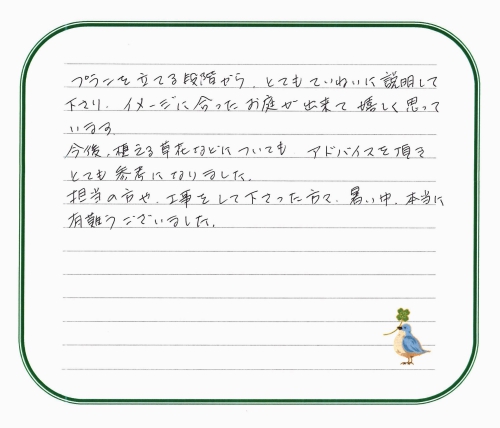 プランを立てる段階から、とてもていねいに説明して
下さり、イメージに合ったお庭が出来て嬉しく思って
います。
今後、植える草花などについても アドバイスを頂き
とても参考になりました。
担当の方や、工事をして下さった方々、暑い中、本当に
有難うございました。